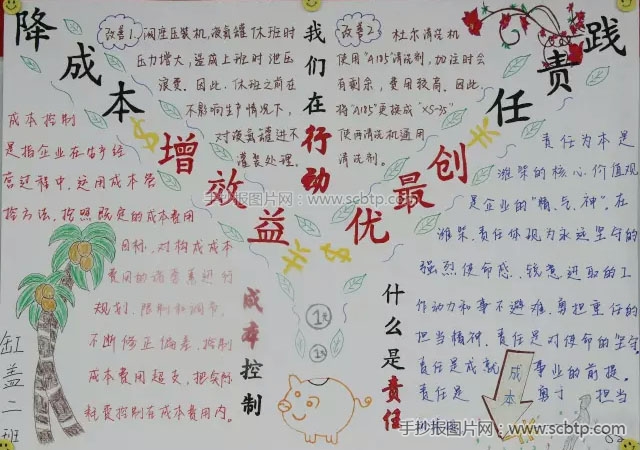 降成本
增效益
创最优
践责任
我们在行动
改善1.
改善2:
休班时
压力增大,
浪费。因此,休班之前在
不影响生产情况下,
对液氮罐进行
灌装处理。
杜尔清洗机
使用"A185"清洗剂,加注时会
有剩余,费用较高。因此
将"A185"更换成"XS-35"
使两清洗机通用
清洗剂。
成本控制
是指企业在生产经
营过程中,运用成本管
控方法,按照既定的成本费用
目标,对构成成本
费用的诸要素进行
规划、限制和调节,
不断修正偏差,控制
成本费用超支,把实际
耗费控制在成本费用内。
成本控制
1元
1元
什么是责任
责任为本是
潍柴的核心价值观
是企业的"精、气、神"。在
潍柴,责任体现为永远坚守的
强烈使命感、锐意进取的工
作动力和事不避难、勇担重任的
担当精神。责任是对使命的坚守
责任是成就事业的前提。
责任是 勇于 担当
成本
缸盖二班
手抄报图片网:www.scbtp.com
手抄报图片网:
www.scbtp.com